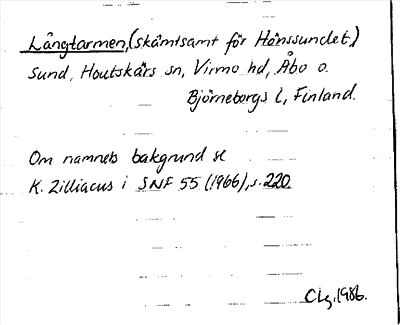 Långtarmen, (skämtsamt för Hönssundet,)
Sund, Houtskärs sn, Virmo hd, Åbo o.
Björneborgs l, Finland.
Om namnets bakgrund se
K. Zilliacus i SNF 55 (1966), s. 220.
Clg. 1986.